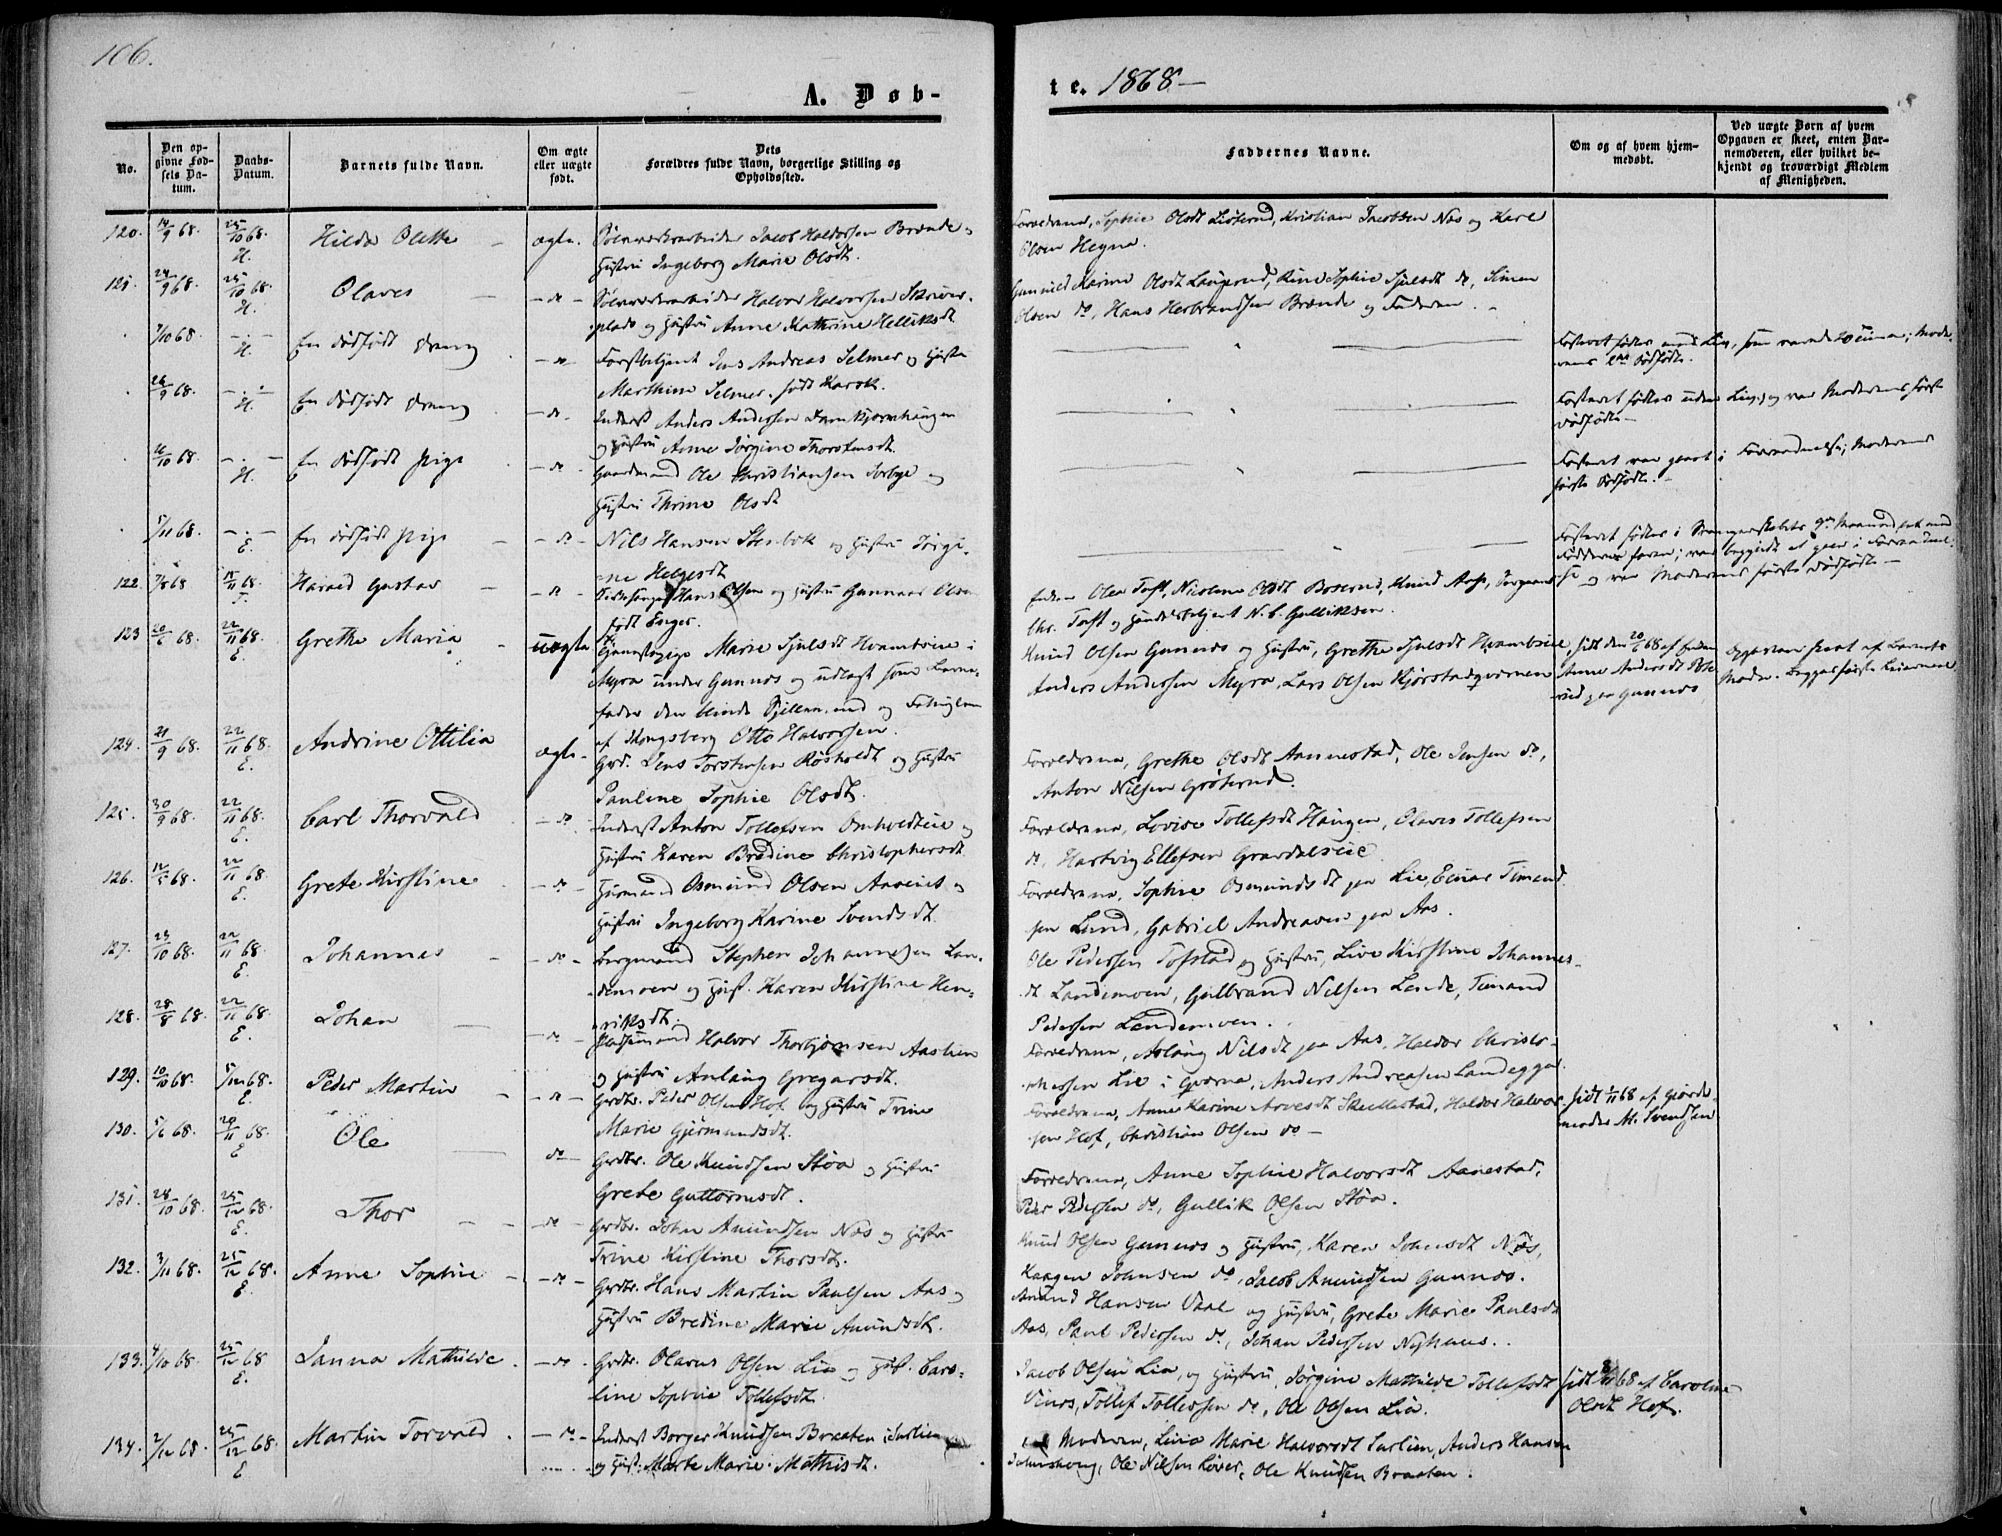 106.
A. Døb-
te. 1868 —
No.
Den op-
givne Fød-
sels Da-
tum.
Daabs-
Datum.
Barnets fulde Navn.
Om ægte
eller uægte
født.
Dets
Forældres fulde Navn, borgerlige Stilling og
Opholdssted.
Faddernes Navne.
Om og af hvem hjem-
medøbt.
Ved uægte Børn af hvem
Opgaven er skeet, enten Bar-
nemoderen, eller hvilket be-
kjendt og troværdigt Medlem
af Menigheden.
120. 14/9 68. 25/10 68. H. Hilda Olette — ægte. Sølvverksarbeider Jacob Haldorsen Brænde og
Hustru Ingeborg Marie Olsdt.
Forældrene, Sophie Olsdt Liøterud, Kristian Jacobsen Næs og Karl
Olsen Hegna.
121. 24/9 68. 25/10 68. H. Olaves — — do — Sølvverksarbeider Halvor Halvorsen Skriver-
plads og Hustru Anne Kathrine Helliksdt
Gunnild Karine Olsdt Laugerud, Rine Sophie Sjulsdt do, Simen
Olsen do, Hans Herbrandsen Brænde og Faderen. —
7/10 68. H. En dødfødt dreng — do Forstbetjent Jens Andreas Selmer og Hustru
Marthine Selmer, født Karsk.
Fosteret fødtes med Liv, som varede 10 Timer; Mode-
rens 2det dødfødte.
26/9 68. H. En dødfødt dreng — do. Inderst Anders Andersen
og Hustru Anne Jørgine Thorstensdt.
Fosteret fødtes uden Liv og var Moderens første
dødfødte —
16/10 68. H. En dødfødt pige — do — Gaardmand Ole Christiansen Sorbye og
Hustru Thrine Olsdt
Fosteret var gaaet i Forraadnelse; Moderens
første dødfødte. —
5/11 68. — E. En dødfødt pige — — do — Nils Hansen Stenbok og Hustru Jørgi-
ne Helgesdt
Fosteret fødtes i Svangerskabets 9de Maaned
Fødderne foran; var begyndt at gaae i Forraadnel-
se og var Moderens første dødfødte —
122. 7/8 68 15/11 68. F. Harald Gustav — — do — Kirkesanger Hans Olsen og Hustru Gunnaar Olsen
født Enger.
Ole Toft, Nicoline Olsdt Boserud, Knud Aas,
Chr. Toft og Handelsbetjent N. C. Gulliksen.
123 20/6 68. 22/11 68. E. Grethe Maria — uægte Marie Sjulsdt Hvambseie i
Myra under Gunnes og udlagt som Barne-
fader den blinde og Fattiglem
af Kongsberg Otto Halvorsen.
Knud Olsen Gunnes og Hustru, Grethe Sjulsdt Hvambseie,
Anders Andersen Myra, Lars Olsen Hjørstadqværnen
født den 20/6 68 af
Anne Andersdt
paa Gunnes
Opgaven skeet af Barnets
Moder. Begges første Leiermaal
124. 21/9 68. 22/11 68. E. Andrine Ottilia ægte. Grd. Jens Torstensen Røsholdt og Hustru
Pauline Sophie Olsdt.
Forældrene, Grethe Olsdt Aannestad, Ole Jensen do,
Anton Nielsen Grøterud.
125. 30/9 68. 22/11 68. E. Carl Thorvald — do. Inderst Anton Tollefsen Omholdteie og
Hustru Karen Bredine Christophersdt
Forældrene, Lovise Tollefsdt Haugen, Olaves Tollefsen
do, Hartvig Ellefsen Gravdalseie
126. 12/5 68. 22/11 68. E. Grete Kirstine — do — Huusmand Osmund Olsen Aaseiet og
Hustru Ingeborg Karine Svendsdt.
Forældrene, Sophie Osmundsdt paa Lie, Einar Timand-
sen Lund, Gabriel Andreasen paa Aas.
127. 23/10 68. 22/11 68. E. Johannes — — do — Bergmand Stephen Johannesen Lan-
demoen og Hust. Karen Kirstine Hen-
riksdt.
Ole Pedersen Tofstad og Hustru, Live Kirstine Johannes-
dt Landemoen, Gulbrand Nilsen Lande, Timand
Pedersen Landemoen.
128. 28/8 68. 22/11 68. E. Johan — — do — Pladsmand Halvor Thorbjørnsen Aaslien
og Hustru Anlaug Gregarsdt.
Forældrene, Aslaug Nilsdt paa Aas, Haldor Christo-
phersen Lie i Qværna, Anders Andreasen Landegga
129. 10/10 68. 5/12 68. E. Peder Martin — — do — Grdbr. Peder Olsen Hof og Hustru Trine
Marie Gjermundsdt.
Forældrene, Anne Karine Arvesdt Skullestad, Haldor Halvor-
sen Hof, Christian Olsen do —
født 1/11 68 af Gjorde-
moder M. Svendsen
130. 5/6 68. 20/11 68. E Ole — do — Grdbr. Ole Knudsen Støa og Hustru
Grete Guttormsdt.
Forældrene, Anne Sophie Halvorsdt Aanestad,
Peder Pedersen do, Gullik Olsen Støa.
131. 28/10 68. 25/12 68. E. Thor — — — do — Grdbr. John Amundsen Næs og Hustru
Trine Kirstine Thorsdt.
Knud Olsen Gunnes og Hustru, Karen Johnsdt Næs,
Haagen Johnsen do, Jacob Amundsen Gunnes.
132. 3/11 68. 25/12 68. E. Anne Sophie — — do — Grdbr. Hans Martin Paulsen Aas og
Hustru Bredine Marie Amundsdt.
Amund Hansen Vaal og Hustru, Grete Marie Paulsdt
Aas, Paul Pedersen do, Johan Pedersen Nyhuus.
133. 4/10 68. 25/12 68 E. Janna Mathilde — do — Grdbr. Olavus Olsen Lia og Hust. Caro-
line Sophie Tollefsdt.
Jacob Olsen Lia, og Hustru, Jørgine Mathilde Tollefsdt
Vinæs, Tollef Tollefsen do, Ole Olsen Lia.
født 8/11 68 af Caroline
Olsdt Hof.
134. 2/12 68. 25/12 68. E Martin Torvald — do — Inderst Borger Knudsen Braaten i Surlien
og Hust. Marte Marie Mathisdt.
Moderen, Lina Marie Halvorsdt Surlien, Anders Hansen
Ole Nilsen Løver, Ole Knudsen Braaten.